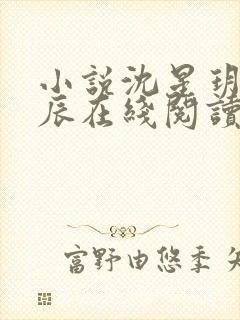 小説沈星玥
辰在綫閱讀
富野由悠季